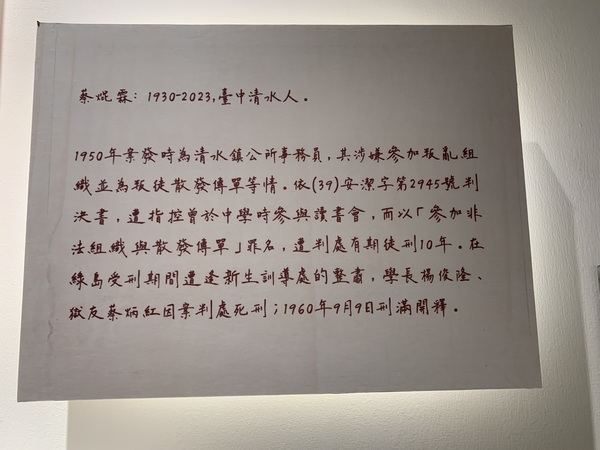 蔡焜霖：1930-2023,臺中清水人。
1950年案發時為清水鎮公所事務員，其涉嫌參加叛亂組
織並為叛徒散發傳單等情。依(39)安潔字第2945號判
決書，遭指控曾於中學時參與讀書會，而以「參加非
法組織與散發傳單」罪名，遭判處有期徒刑10年。在
綠島受刑期間遭逢新生訓導處的整肅，學長楊俊隆、
獄友蔡炳紅因案判處死刑；1960年9月9日刑滿開釋。